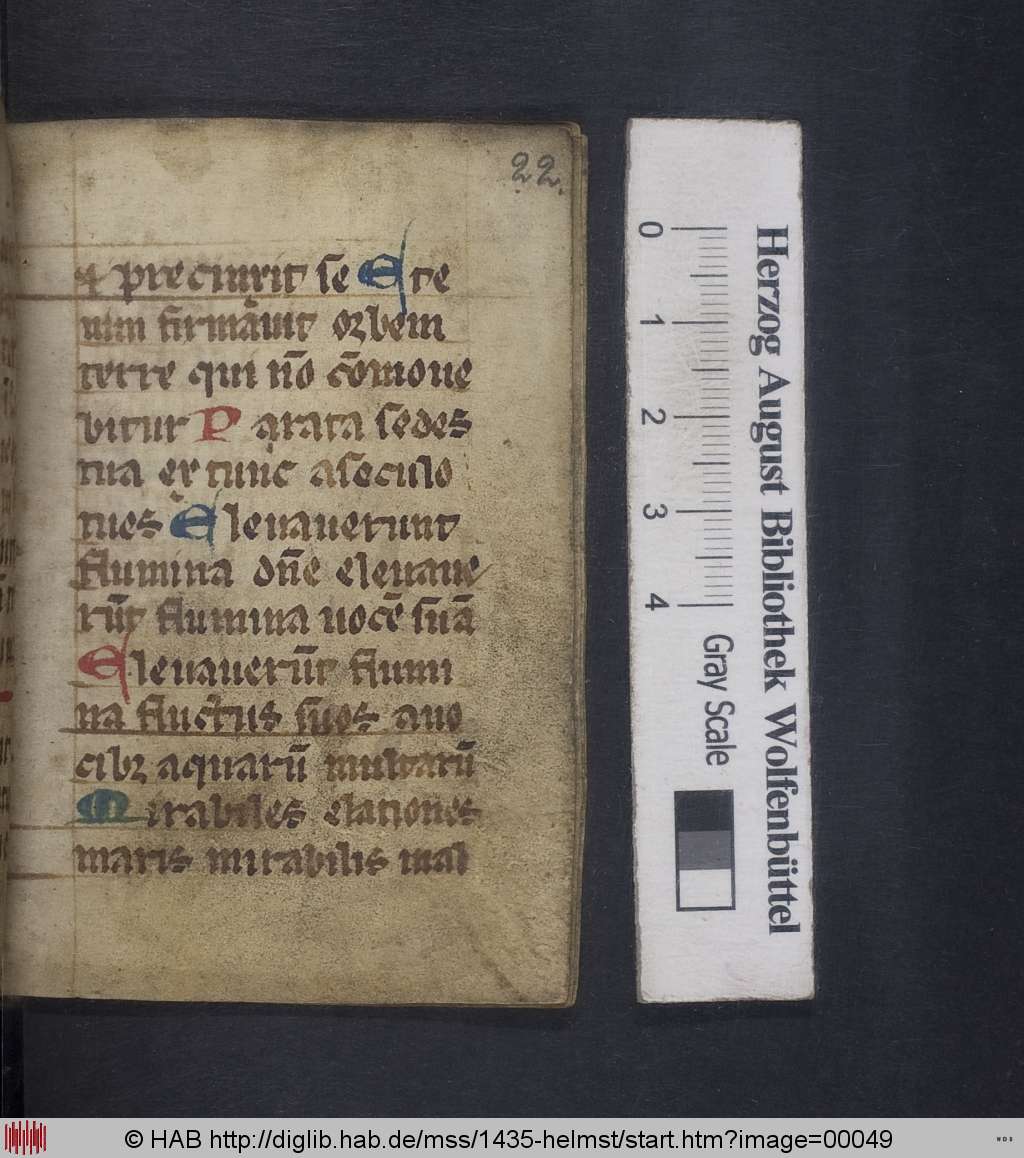 22.
⁊ precinxit se Ete
nim firmāuit orbem
terre qui nō cōmoue
bitur Parata sedes
tua ex tunc aseculo
tues Eleuauerunt
flumina dn̄e eleuaue
rūt flumina uocē suā
Eleuauerūt flumi
na fluctus suos auo
cibꝫ aquarū multarū
Mirabiles elationes
maris mirabilis in al
0
1
2
3
4
Gray Scale
Herzog August Bibliothek Wolfenbüttel
© HAB http://diglib.hab.de/mss/1435-helmst/start.htm?image=00049